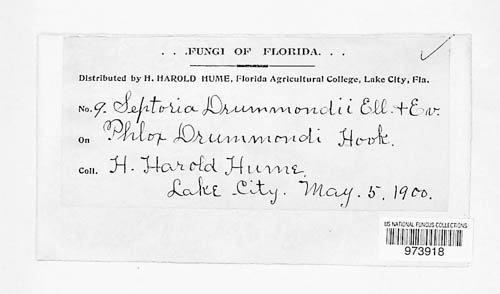 . . .FUNGI OF FLORIDA. . .
Distributed by H. HAROLD HUME, Florida Agricultural College, Lake City, Fla.
No. 9. Septoria Drummondii Ell. + Ev.
On Phlox Drummondi Hook.
Coll. H. Harold Hume.
Lake City. May. 5, 1900.
US NATIONAL FUNGUS COLLECTIONS
973918